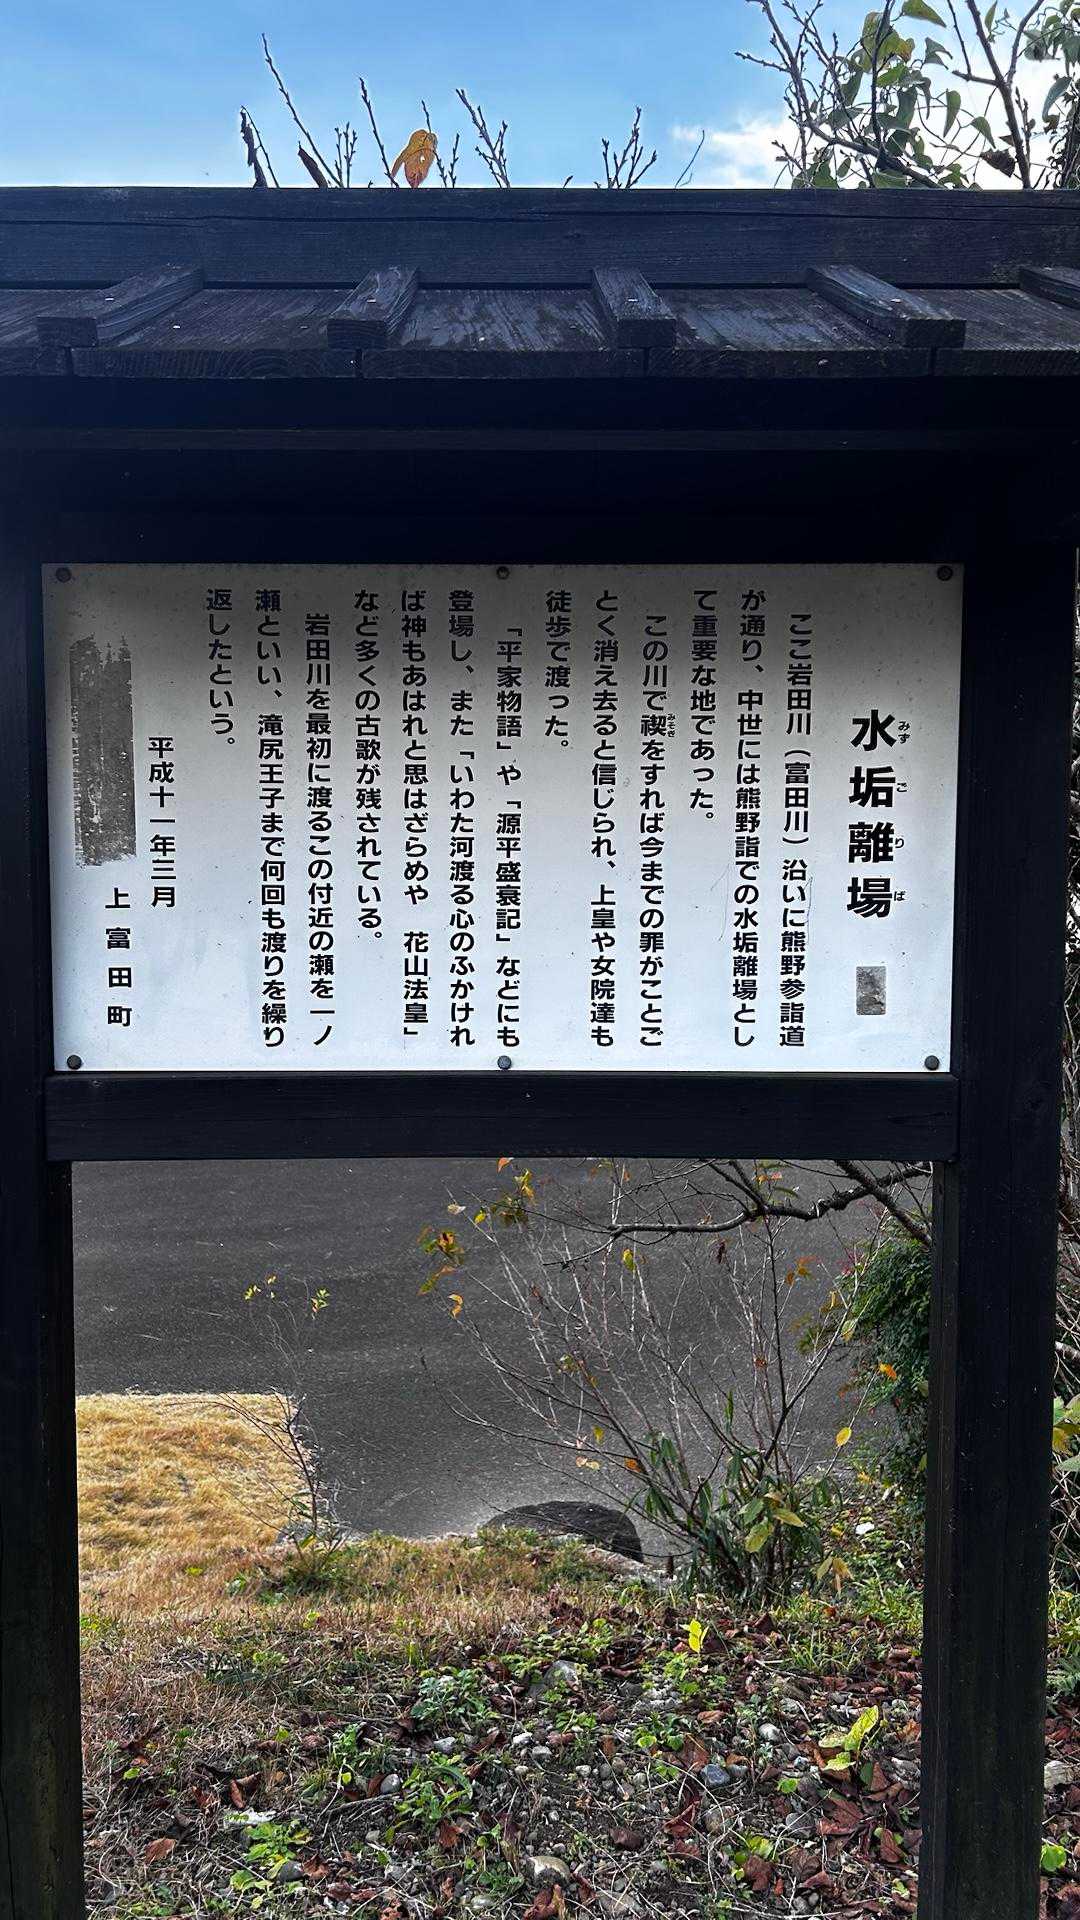 水垢離場
みずごりば
ここ岩田川（富田川）沿いに熊野参詣道
が通り、中世には熊野詣での水垢離場とし
て重要な地であった。
この川で禊をすれば今までの罪がことご
みそぎ
とく消え去ると信じられ、上皇や女院達も
徒歩で渡った。
「平家物語」や「源平盛衰記」などにも
登場し、また「いわた河渡る心のふかけれ
ば神もあはれと思はざらめや　花山法皇」
など多くの古歌が残されている。
岩田川を最初に渡るこの付近の瀬を一ノ
瀬といい、滝尻王子まで何回も渡りを繰り
返したという。
平成十一年三月
上富田町